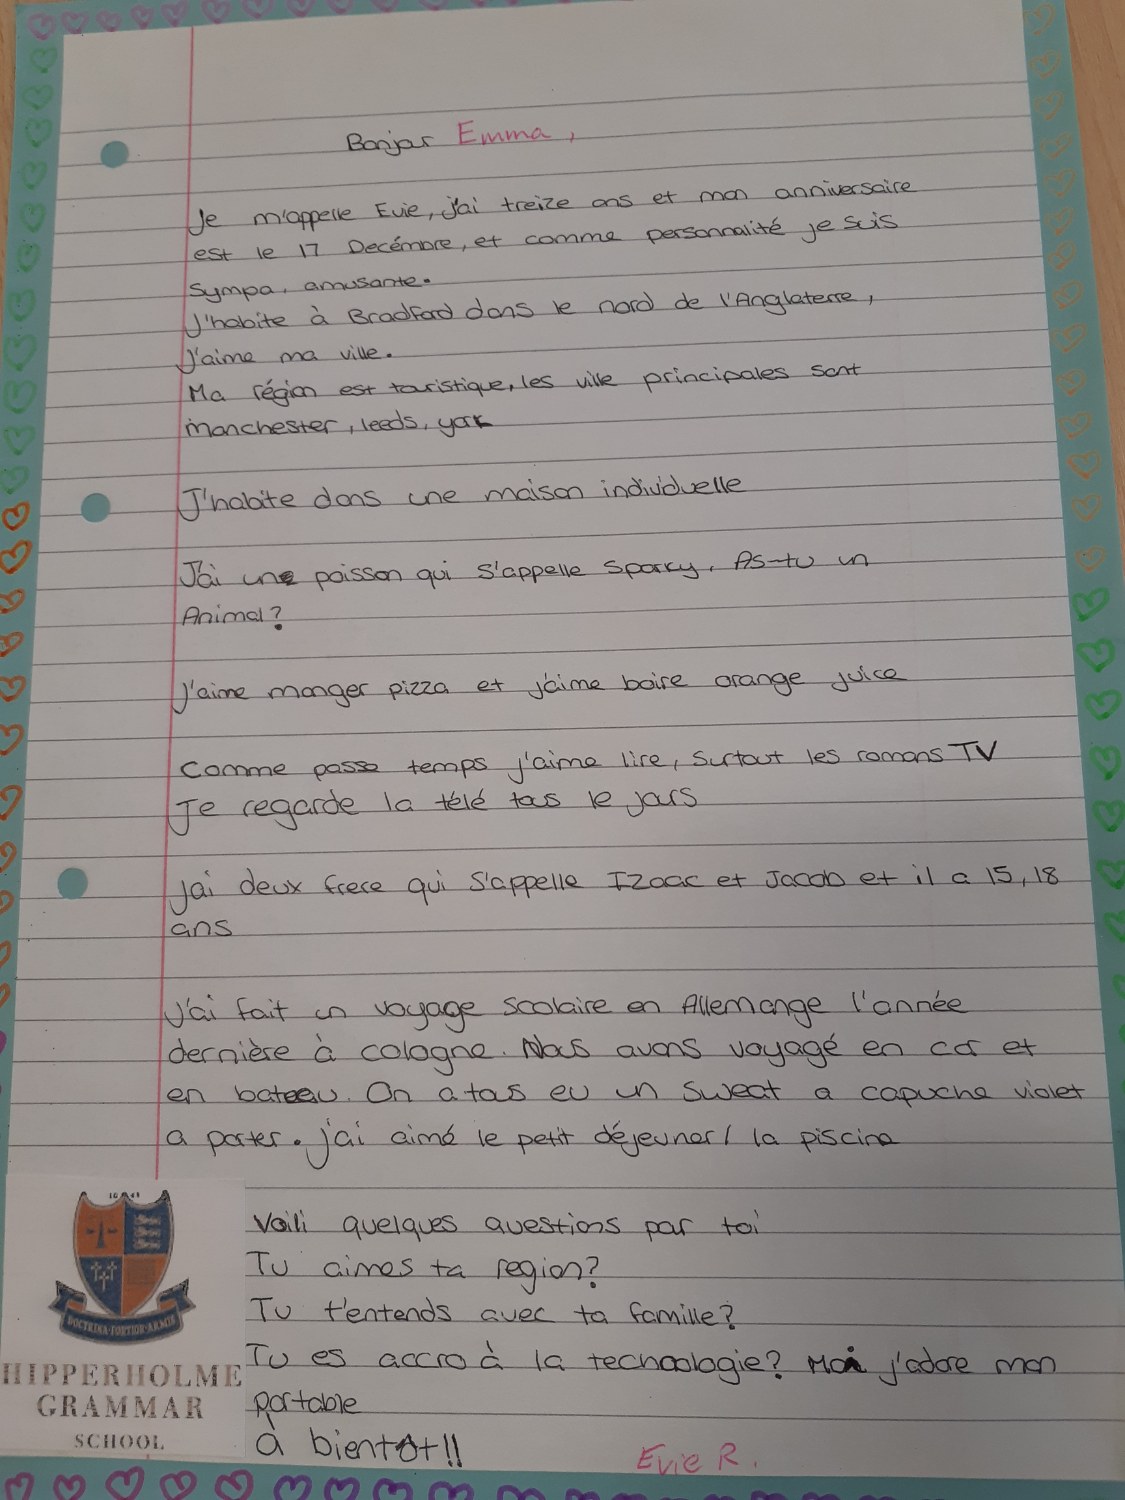 Bonjour Emma,
Je m'appelle Evie, j'ai treize ans et mon anniversaire
est le 17 Decémbre, et comme personnalité je suis
sympa, amusante.
J'habite à Bradford dans le nord de l'Angleterre,
J'aime ma ville.
Ma région est touristique, les ville principales sont
manchester, leeds, york
J'habite dans une maison individuelle
J'ai une poisson qui s'appelle Sparky. As-tu un
Animal?
J'aime manger pizza et j'aime boire orange juice
Comme passe temps j'aime lire, surtout les romans TV
Je regarde la télé tous le jours
J'ai deux frere qui s'appelle Izaac et Jacob et il a 15, 18
ans
J'ai fait un voyage scolaire en Allemange l'année
dernière à cologne. Nous avons voyagé en car et
en bateau. On a tous eu un sweat a capuche violet
a porter. j'ai aimé le petit déjeuner / la piscine
Voili quelques questions par toi
Tu aimes ta region?
Tu t'entends avec ta famille?
Tu es accro à la technologie? Moi j'adore mon
portable
à bientot!!
Evie R.
DOCTRINA FORTIOR ARMIS
HIPPERHOLME
GRAMMAR
SCHOOL